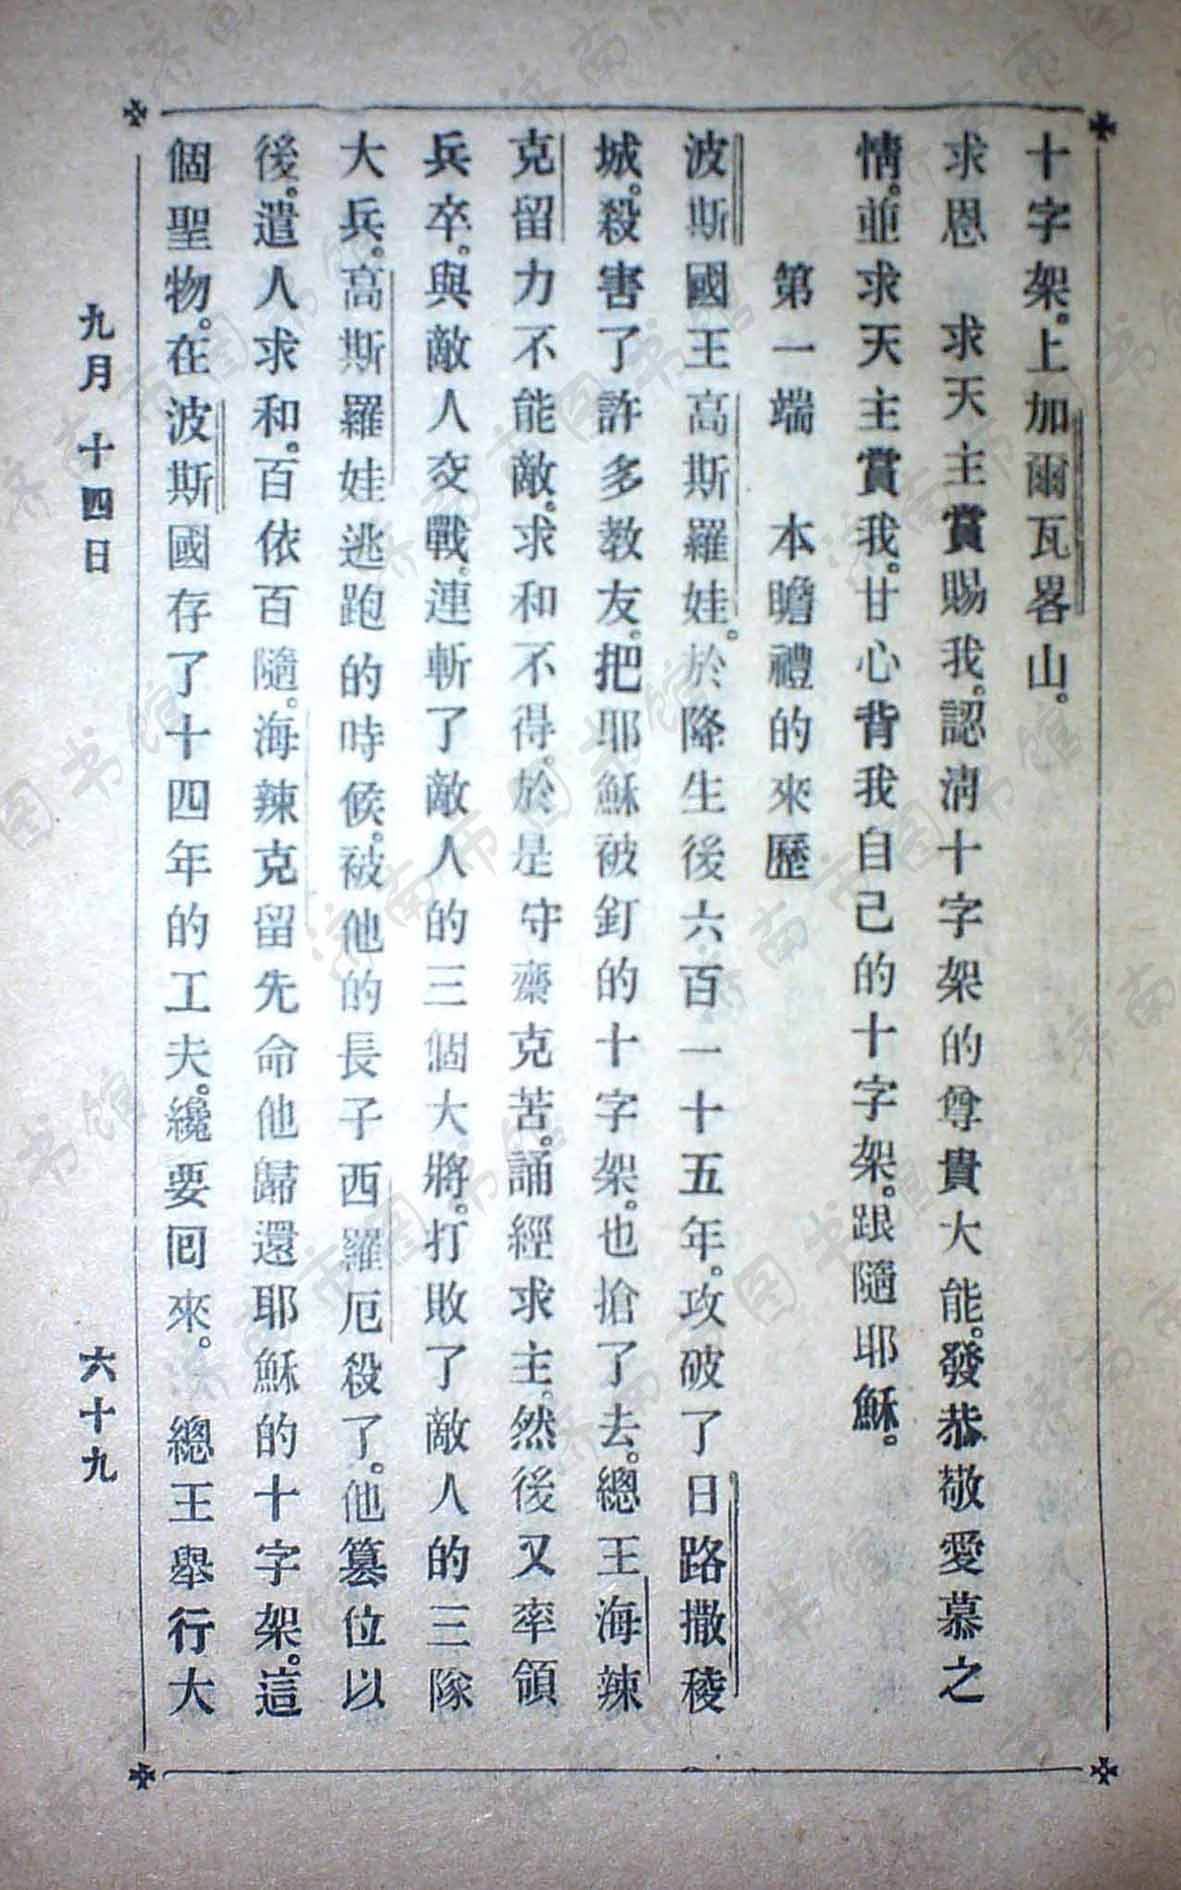 十字架。上加爾瓦畧山。
求恩　求天主賞賜我。認清十字架的尊貴大能。發恭敬愛慕之
情。並求天主賞我。甘心背我自己的十字架。跟隨耶穌。
第一端　本瞻禮的來歷
波斯國王高斯羅娃。於降生後六百一十五年。攻破了日路撒稜
城。殺害了許多教友。把耶穌被釘的十字架。也搶了去。總王海辣
克留力不能敵。求和不得。於是守齋克苦。誦經求主。然後又率領
兵卒。與敵人交戰。連斬了敵人的三個大將。打敗了敵人的三隊
大兵。高斯羅娃逃跑的時候。被他的長子西羅厄殺了。他篡位以
後。遣人求和。百依百隨。海辣克留先命他歸還耶穌的十字架。這
個聖物。在波斯國存了十四年的工夫。纔要回來。　總王舉行大
九月十四日　六十九